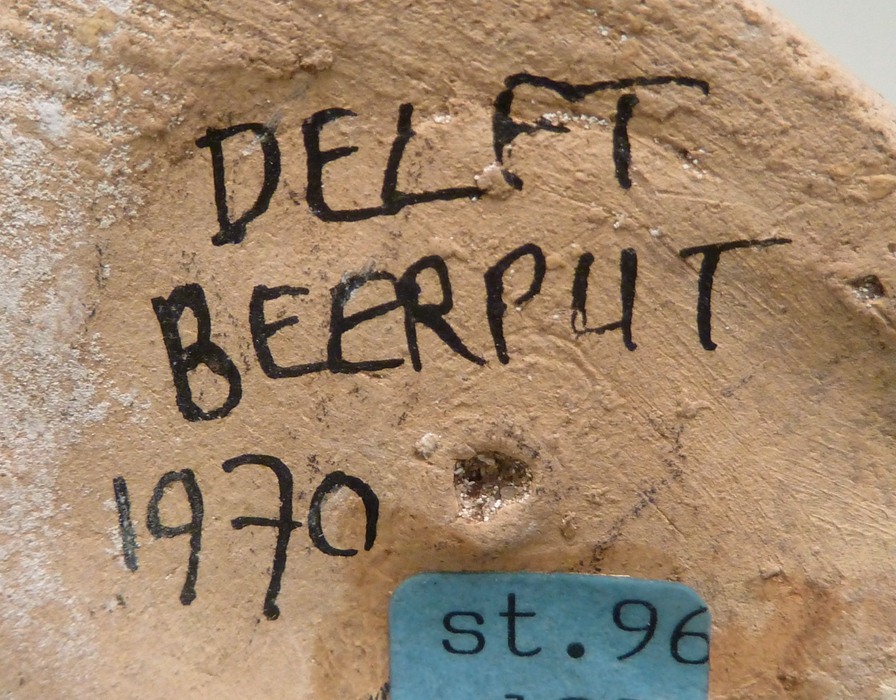 DELFT
BEERPUT
1970
st.96